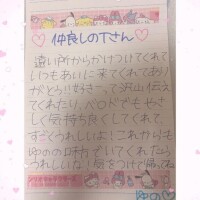 仲良しの下さん
遠い所からかけつけてくれて
いつもあいに来てくれてあり
がとう!!好きって沢山伝え
てくれたり、ベロチでもやさ
しく気持ち良くしてくれて
すごくうれしいよ!これからも
ゆのの味方でいてくれたら
うれしいな!気をつけて帰ってね
ゆの